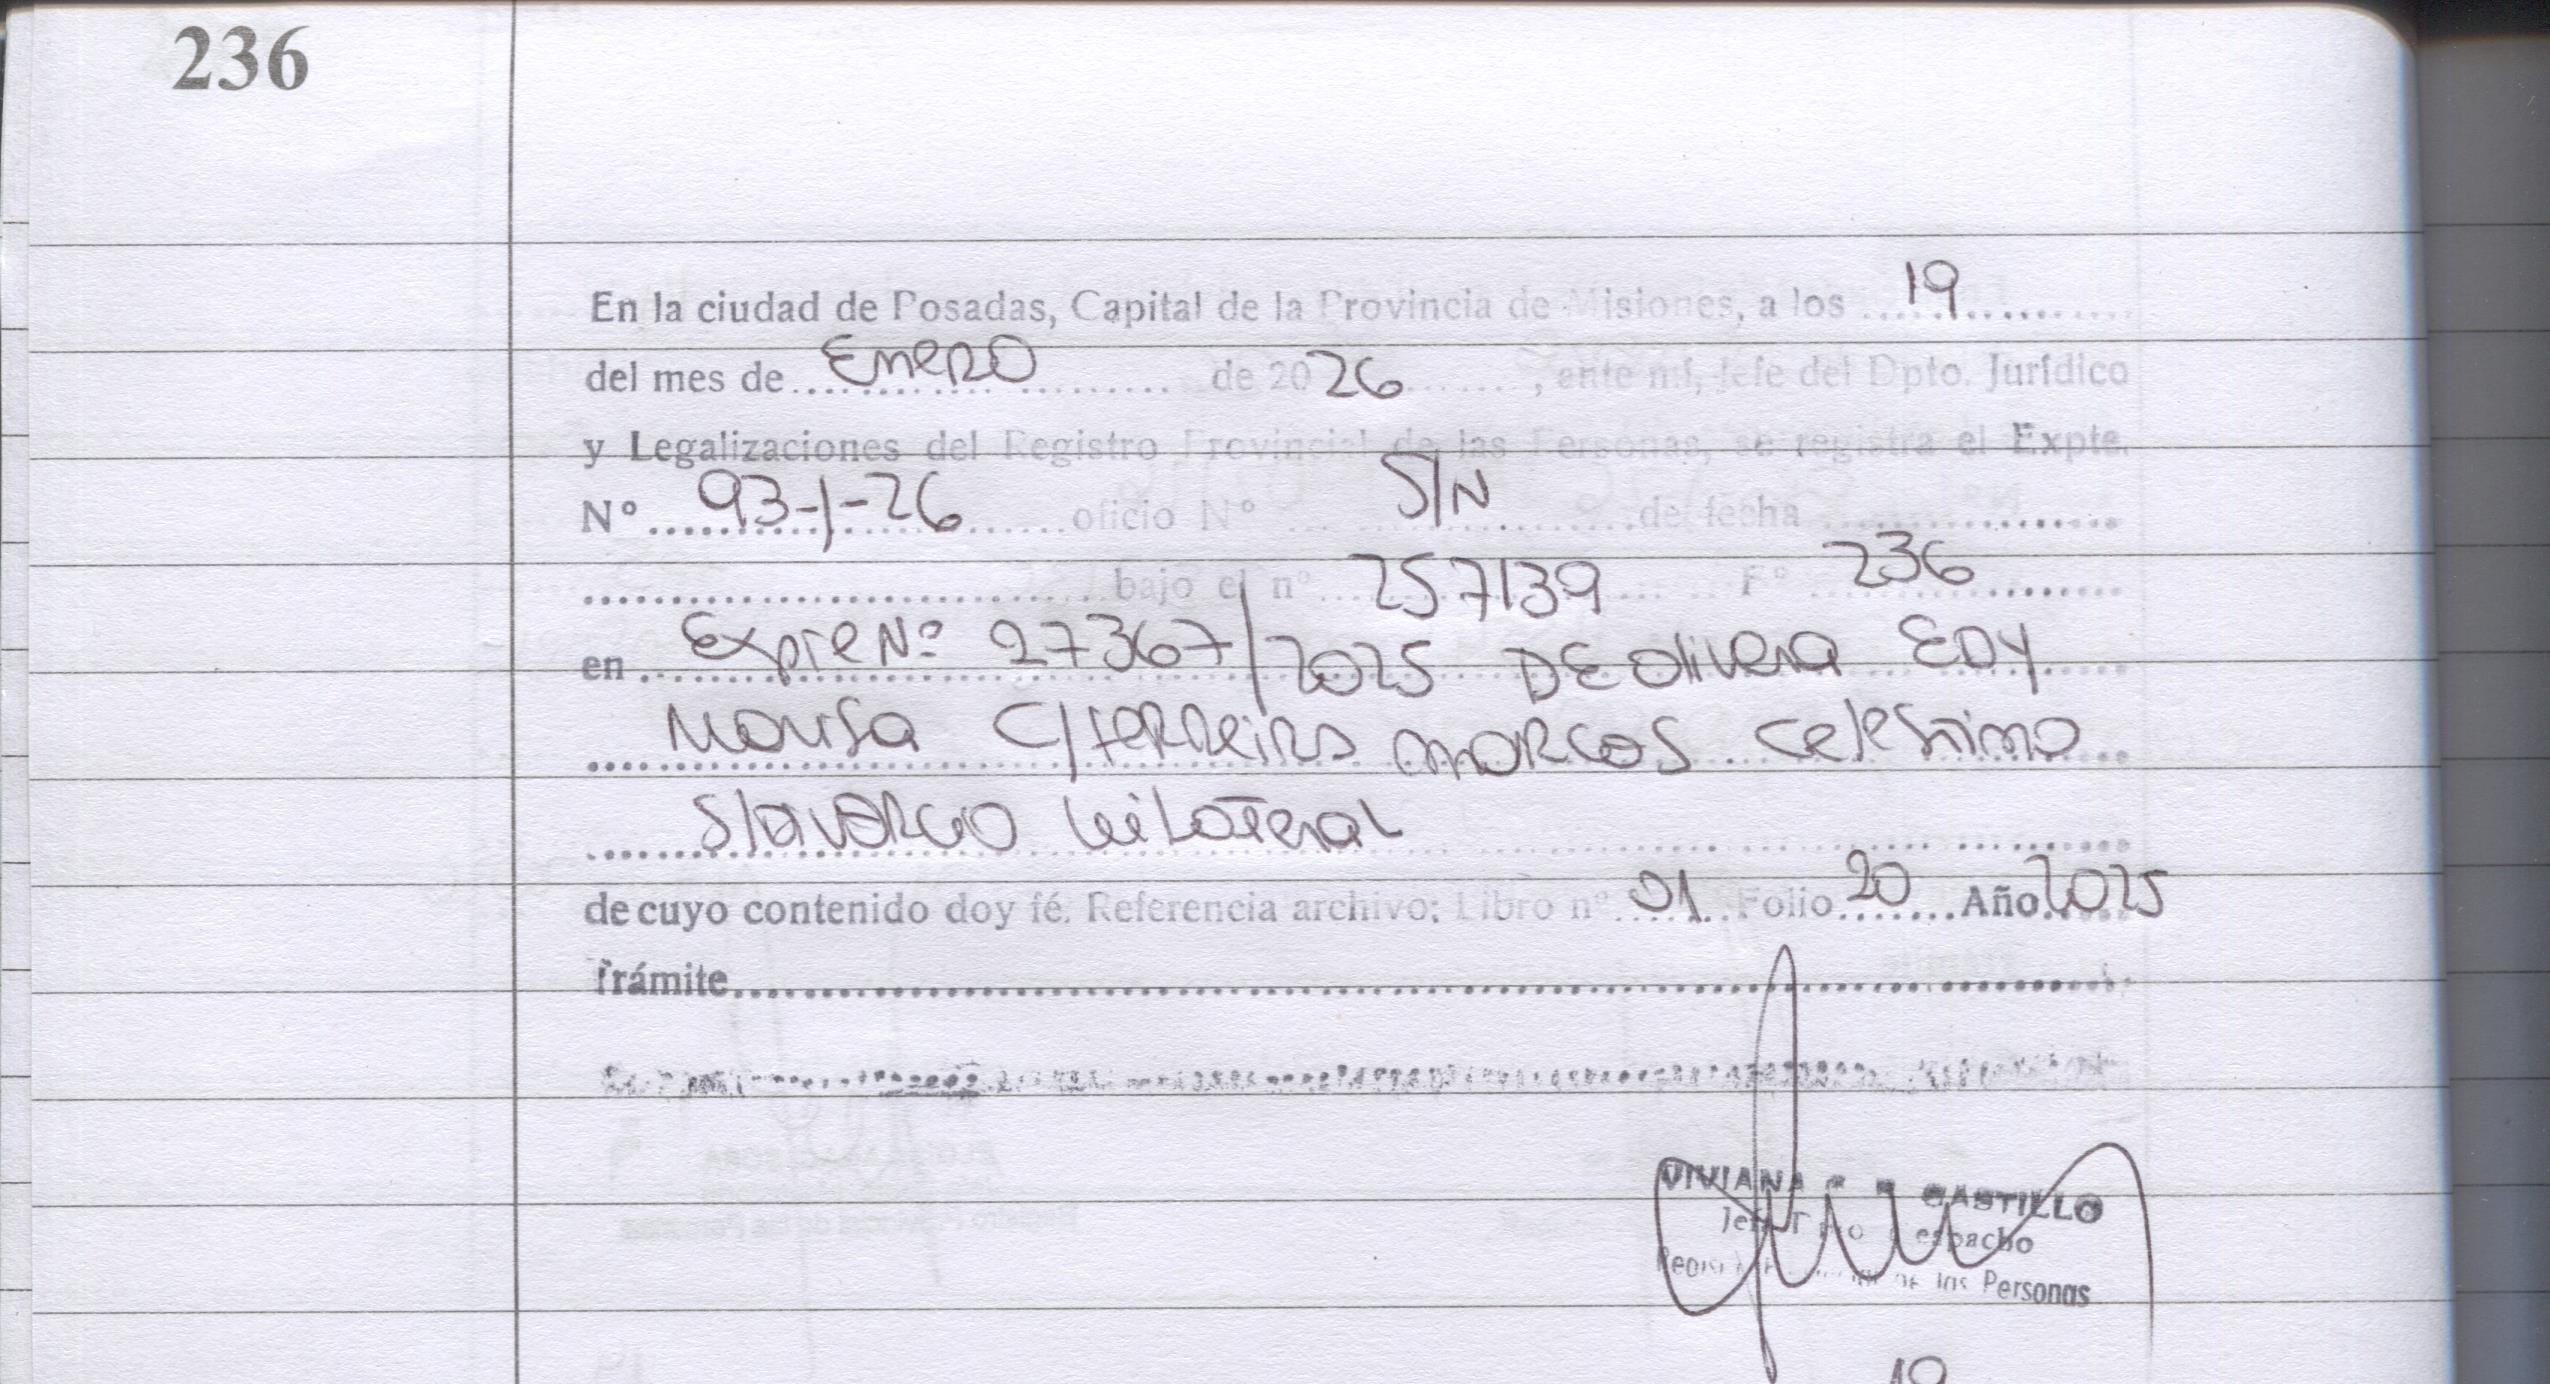 236
En la ciudad de Posadas, Capital de la Provincia de Misiones, a los 19
del mes de Enero de 2026, ante mí, Jefe del Dpto. Jurídico
y Legalizaciones del Registro Provincial de las Personas, se registra el Expte.
Nº 93-1-26 oficio Nº S/N de fecha
bajo el nº 257139 Fº 236
en Expte Nº 27367/2025 DE Olivera EDY
C/ Ferreira Marcos Celestino
S/ Divorcio Unilateral
de cuyo contenido doy fé. Referencia archivo: Libro nº 01 Folio 20 Año 2025
Trámite
VIVIANA CASTILLO
Despacho
de las Personas
19